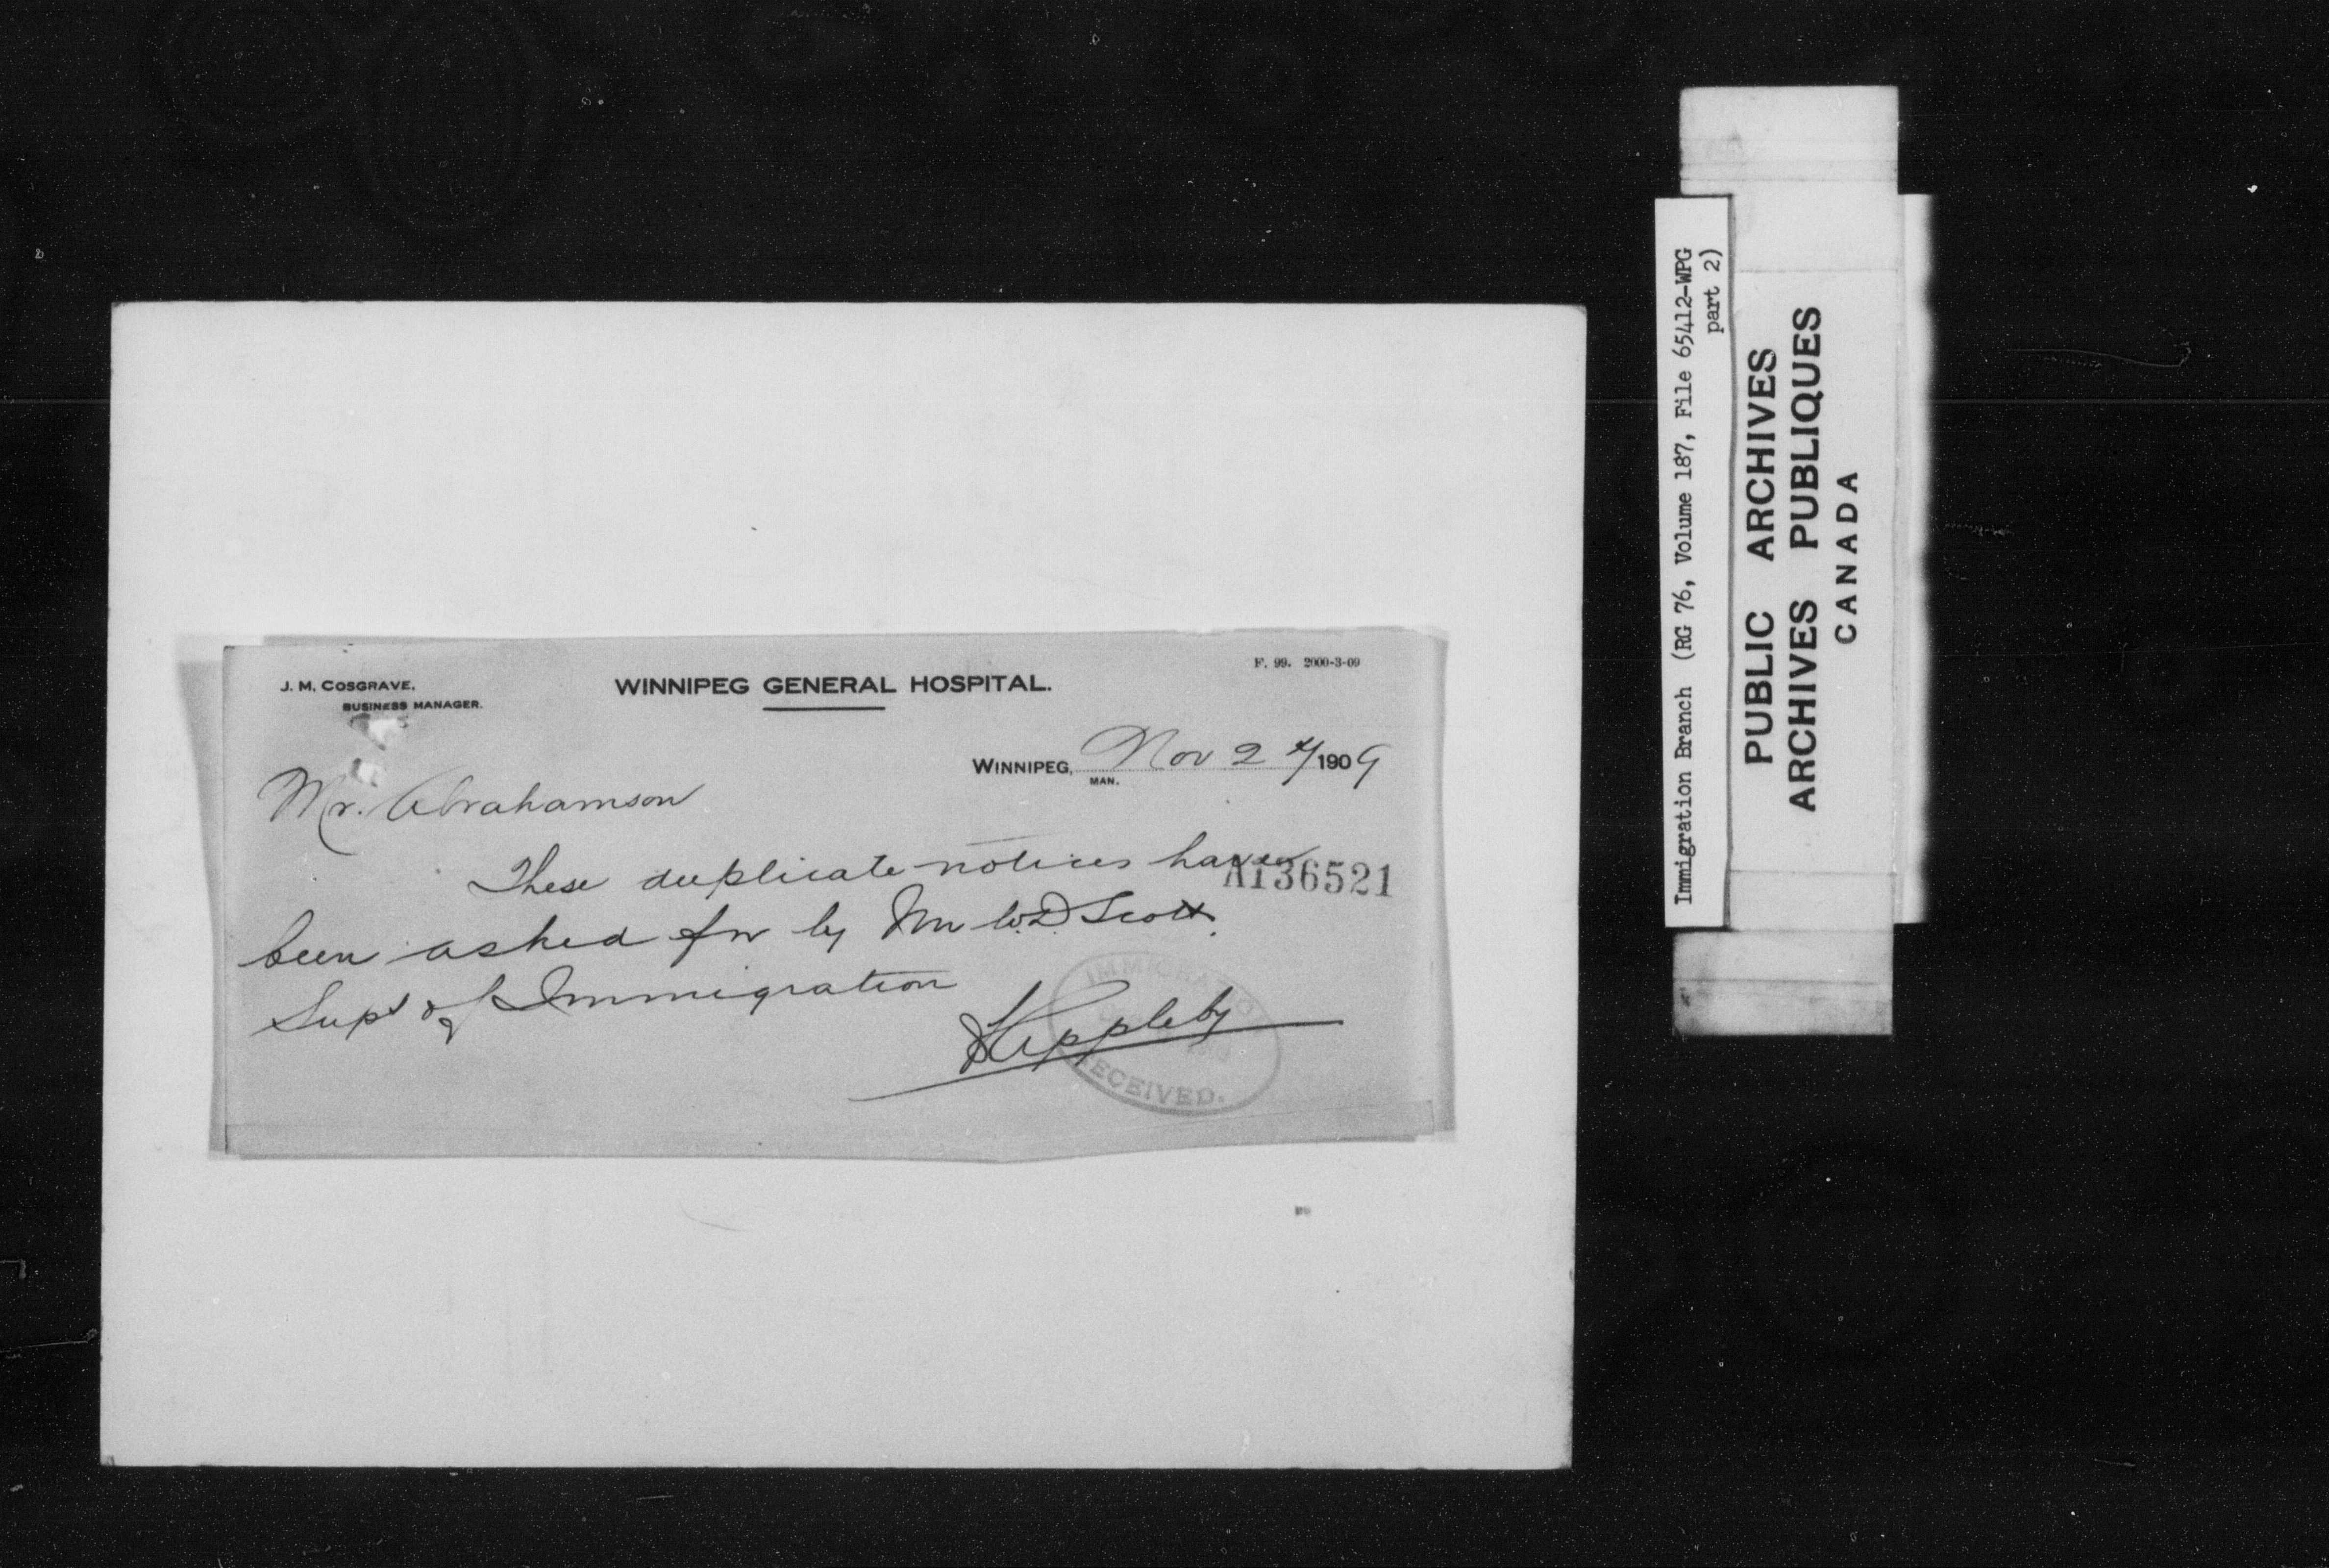 F. 99. 2000-3-09
J. M. COSGRAVE,
BUSINESS MANAGER.
WINNIPEG GENERAL HOSPITAL.
WINNIPEG, MAN. Nov 2 1909
Mr. Abrahamson
These duplicate notices have
A136521
been asked for by Mr W.D. Scott.
Supt of Immigration
Appleby
IMMIGRATION
RECEIVED.
Immigration Branch (RG 76, Volume 187, File 65412-WPG
part 2)
PUBLIC ARCHIVES
ARCHIVES PUBLIQUES
CANADA